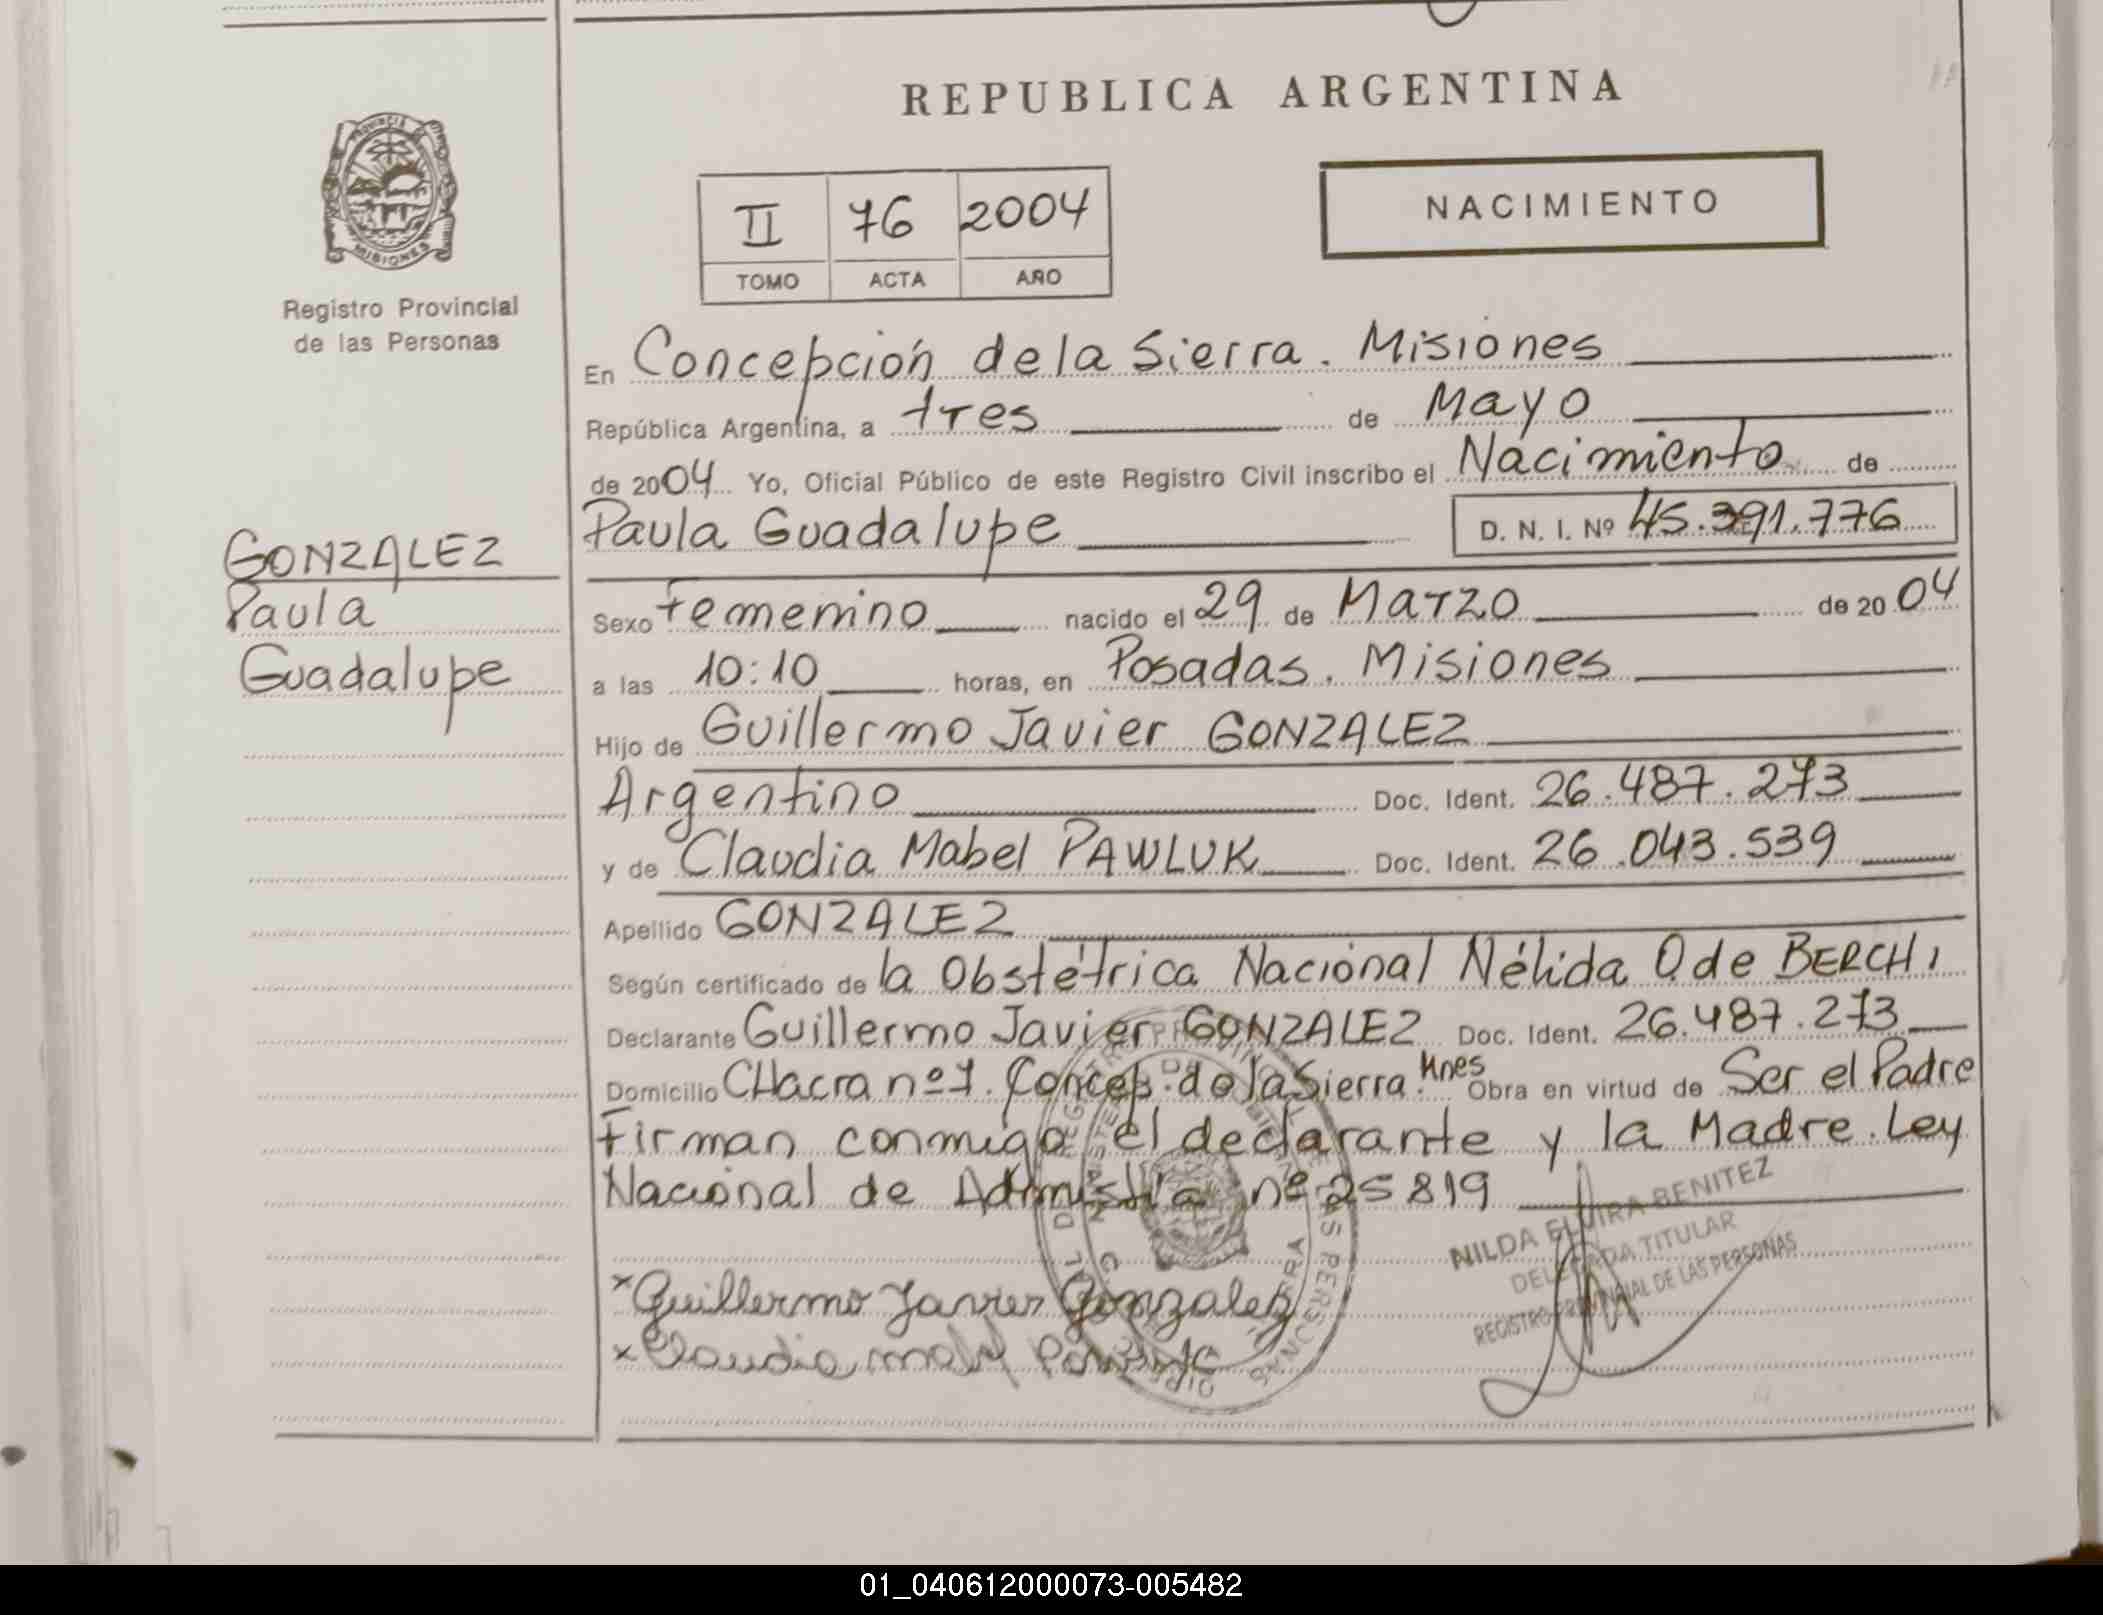 REPUBLICA ARGENTINA
PROVINCIA
MISIONES
Registro Provincial
de las Personas
II 76 2004
TOMO ACTA AÑO
NACIMIENTO
En Concepción de la Sierra. Misiones
República Argentina, a tres de Mayo
de 2004 Yo, Oficial Público de este Registro Civil inscribo el Nacimiento de
Paula Guadalupe D. N. I. Nº 45.391.776
GONZALEZ
Paula
Guadalupe
Sexo Femenino nacido el 29 de Marzo de 2004
a las 10:10 horas, en Posadas. Misiones
Hijo de Guillermo Javier GONZALEZ
Argentino Doc. Ident. 26.487.273
y de Claudia Mabel PAWLUK Doc. Ident. 26.043.539
Apellido GONZALEZ
Según certificado de la Obstétrica Nacional Nélida O de BERCHI
Declarante Guillermo Javier GONZALEZ Doc. Ident. 26.487.273
Domicilio CHacra nº1. Concep. de la Sierra. Mnes Obra en virtud de Ser el Padre
Firman conmigo el declarante y la Madre. Ley
Nacional de Admistía nº 25819
NILDA ELVIRA BENITEZ
DELEGADA TITULAR
REGISTRO PROVINCIAL DE LAS PERSONAS
x Guillermo Javier Gonzalez
x Claudia Mabel Pawluk
01_040612000073-005482